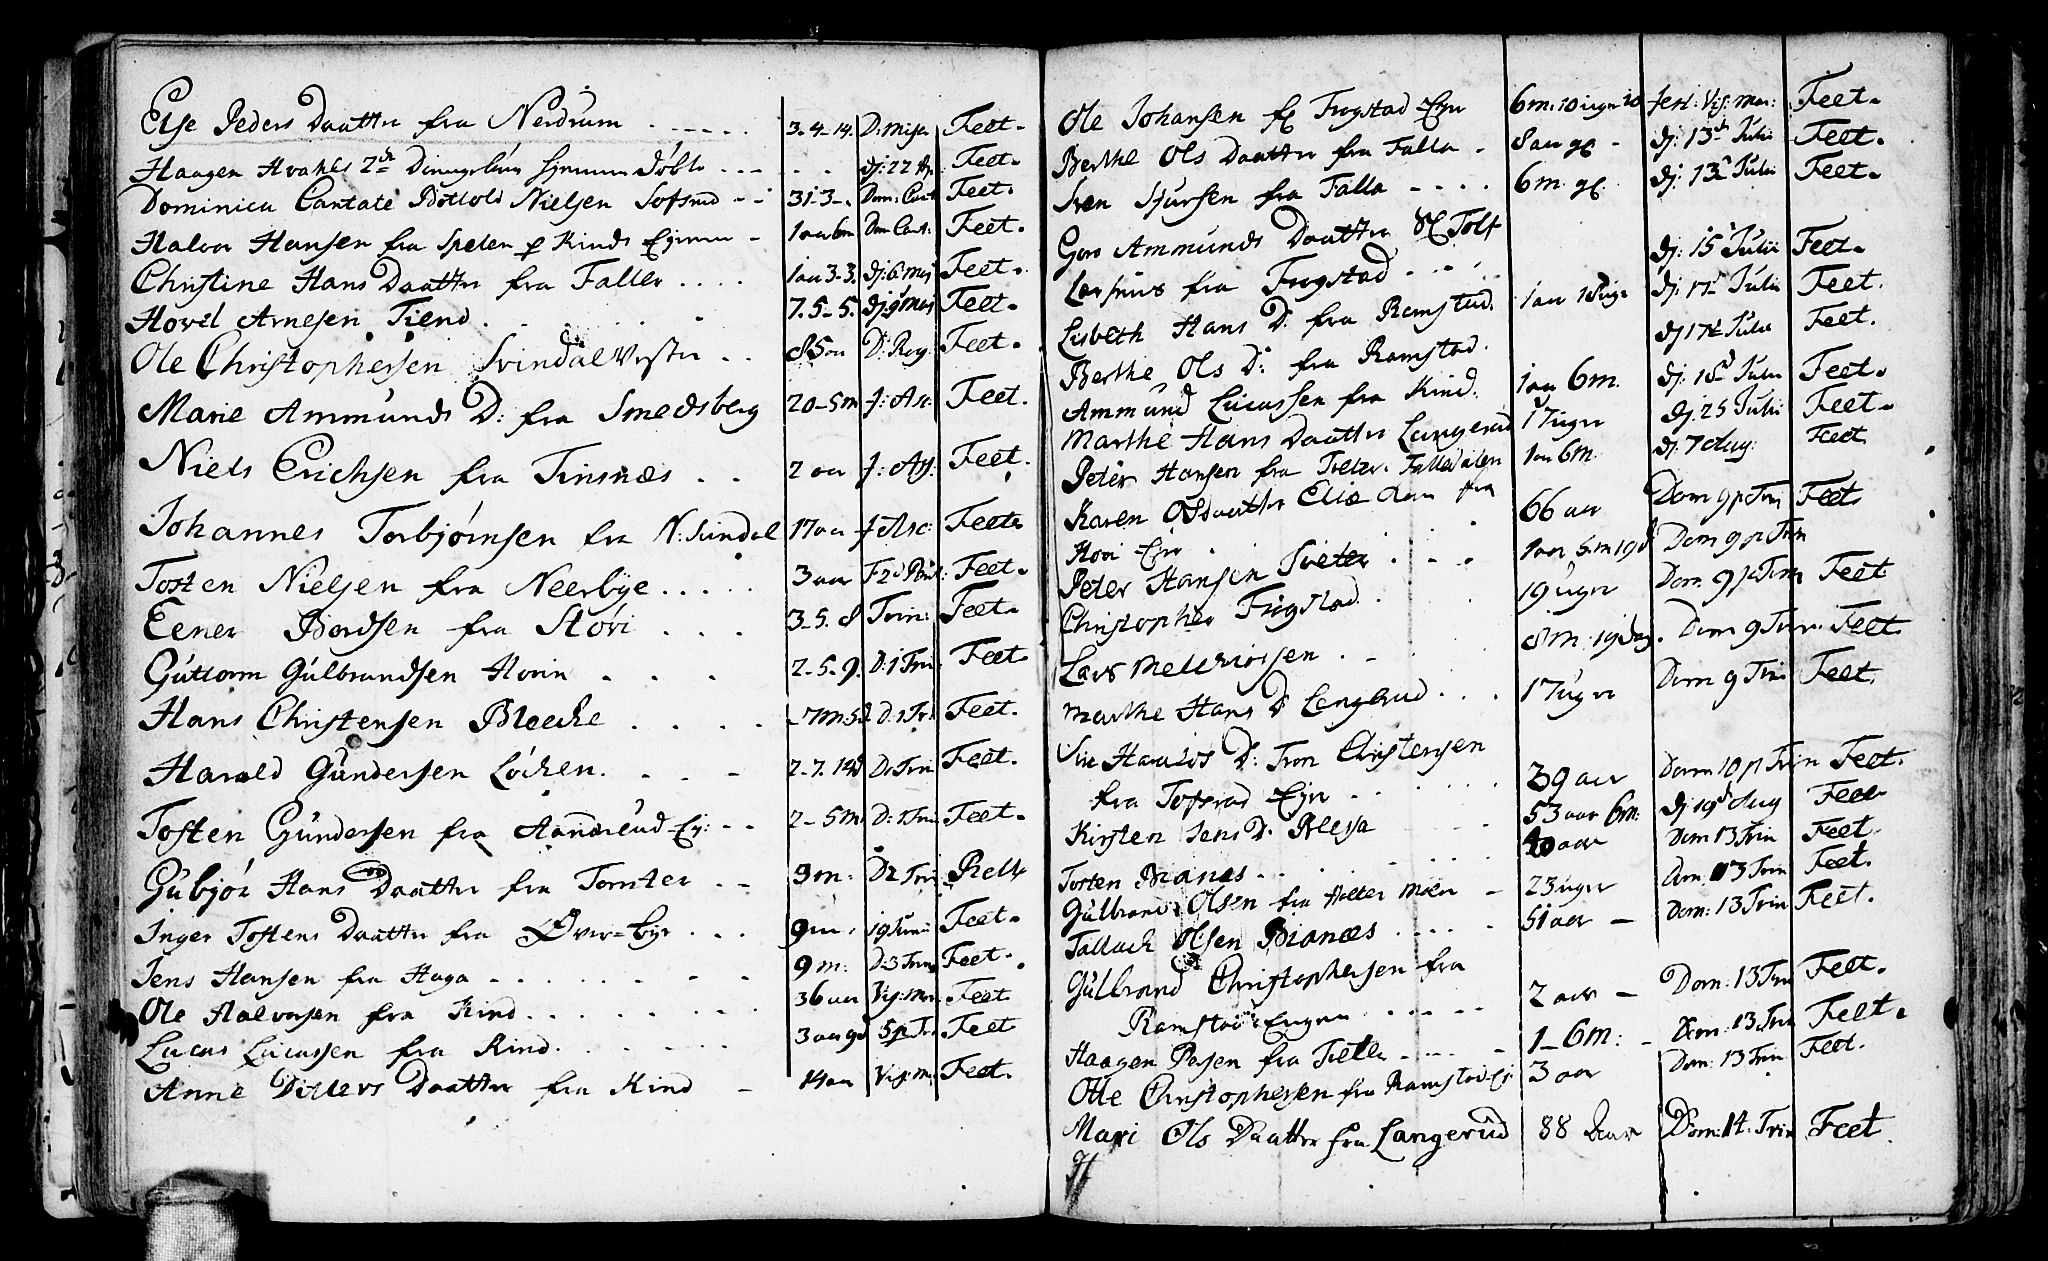 Else Peders Daatter fra Nerdrum . . . . . 3. 4. 14. D: mise Feet.
Haagen 2de . . . dj: 22 Ap. Feet.
Dominica Cantate Nielsen Tofsrud - - 31-3-. Dom: Cant Feet.
Halvor Hansen fra Spelen Kinds Ejernn - 1 aar 6m Dom Cant: Feet.
Christine Hans Daatter fra Faller . . . . 1 aar 3. 3. dj: 6 maj Feet.
Hovel Arnesen Tiend . . . . . 7. 5-5. dj: 9 maj Feet.
Ole Christophersen Svindal Vester . . 85 aar D: Rog: Feet.
Marie Ammunds D: fra Smedsberg 20-5m f: Asc: Feet.
Niels Erichsen fra Tinsnæs . . 2 aar f: As: Feet.
Johannes Torbjørnsen fra N: Svindal 17 aar f Asc: Feet
Tosten Nielsen fra Neerbye . . . . . 3 aar F 2 d Feet.
Eener Bordsen fra Støvi . . . 3-5. 8 Trin: Feet.
Guttorm Gulbrandsen Hovin . . . 2-5-9. D: 1 Tri: Feet.
Hans Christensen Bloeche . . . . -7m 5d D: 1 Tri: Feet.
Harald Gundersen Løchen. . . - 2-7. 14d D: Trin Feet.
Tosten Gundersen fra Aandrud Ej: - - 2-5m D: 1 Trin Feet.
Gubjør Hans Daatter fra Tomter . - 9m: D2 Trin Feet
Inger Tostens Daatter fra Øver=bye . . . 9m. 19 Junii Feet.
Jens Hansen fra Haga - . . . . - - 9m: D:3 Trin Feet.
Ole Halvorsen fra Kind . . . . . . . 36 aar Vis: Mar Feet
Lucas Lucassen fra Kind . . . . . . 3 aar 9d 5 p Tr: Feet
Anne Ditlevs Daatter fra Kind - 14 aar Vis: M: Feet.
Ole Johansen Frogstad Ejer 6m: 10 uger fest: Vis: mar: Feet.
Berthe Ols Daatter fra Falla . 8 aar gl. - dj: 13de Julii Feet.
Sven Sjursen fra Falla - . . . 6m gl. dj: 13de Julii Feet.
Goro Ammunds Daatter Tolf
Larsens fra Frogstad . . . . dj: 15 Julii Feet.
Lisbeth Hans D: fra Ramstad. 1 aar 18 uger dj: 17de Julii Feet.
Berthe Ols D: fra Ramstad. dj 17de Julii Feet.
Ammund Lucassen fra Kind. 1 aar 6m. dj: 18de Julii Feet.
Marthe Hans Daatter Langerud 17 uger dj 25 Julii Feet.
Peter Hansen fra Tveter. Falledalen 1 aar 6m dj: 7 Aug: Feet
Karen Ols Daatter Eliæ dam fra
Hovi Ejer . . . 66 aar Dom 9 p Trin Feet
Peter Hansen Tveter . . . 1 aar 5m 19d Dom 9 p Trin
Christopher Frogstad . . 19 uger Dom 9 p Trin Feet
Lars Melchiorsen . . - 8m: 19 dag. Dom 9 Trin. Feet
Marthe Hans D: Langerud . . . 17 uger Dom 9 Trin Feet.
Siri Haralds D: Tron Christensen
fra Tofsrud Ejer . . . . . . 39 aar Dom 10 p Trin Feet.
Kirsten Jens D: Blessa . . 53 aar 6m: dj 19de Aug Feet
Torsten Bianæs . . . . . . 40 aar Dom 13 Trin Feet.
Gulbrand Olsen fra Holter Moen - 23 uger Dom: 13 Trin Feet.
Tallach Olsen Bianæs . . . . . 51 aar - Dom: 13 Trin Feet.
Gulbrand Christophersen fra
Ramstad Engen . . . . . 2 aar - Dom: 13 Trin Feet.
Haagen Persen fra Tveter . . . . - 1-6m: - Dom: 13 Trin Feet.
Otte Christophersen fra Ramstad Ej: 3 aar Dom: 13 Trin Feet.
Mari Ols Daatter fra Langerud 88 aar Dom: 14: Trin Feet.